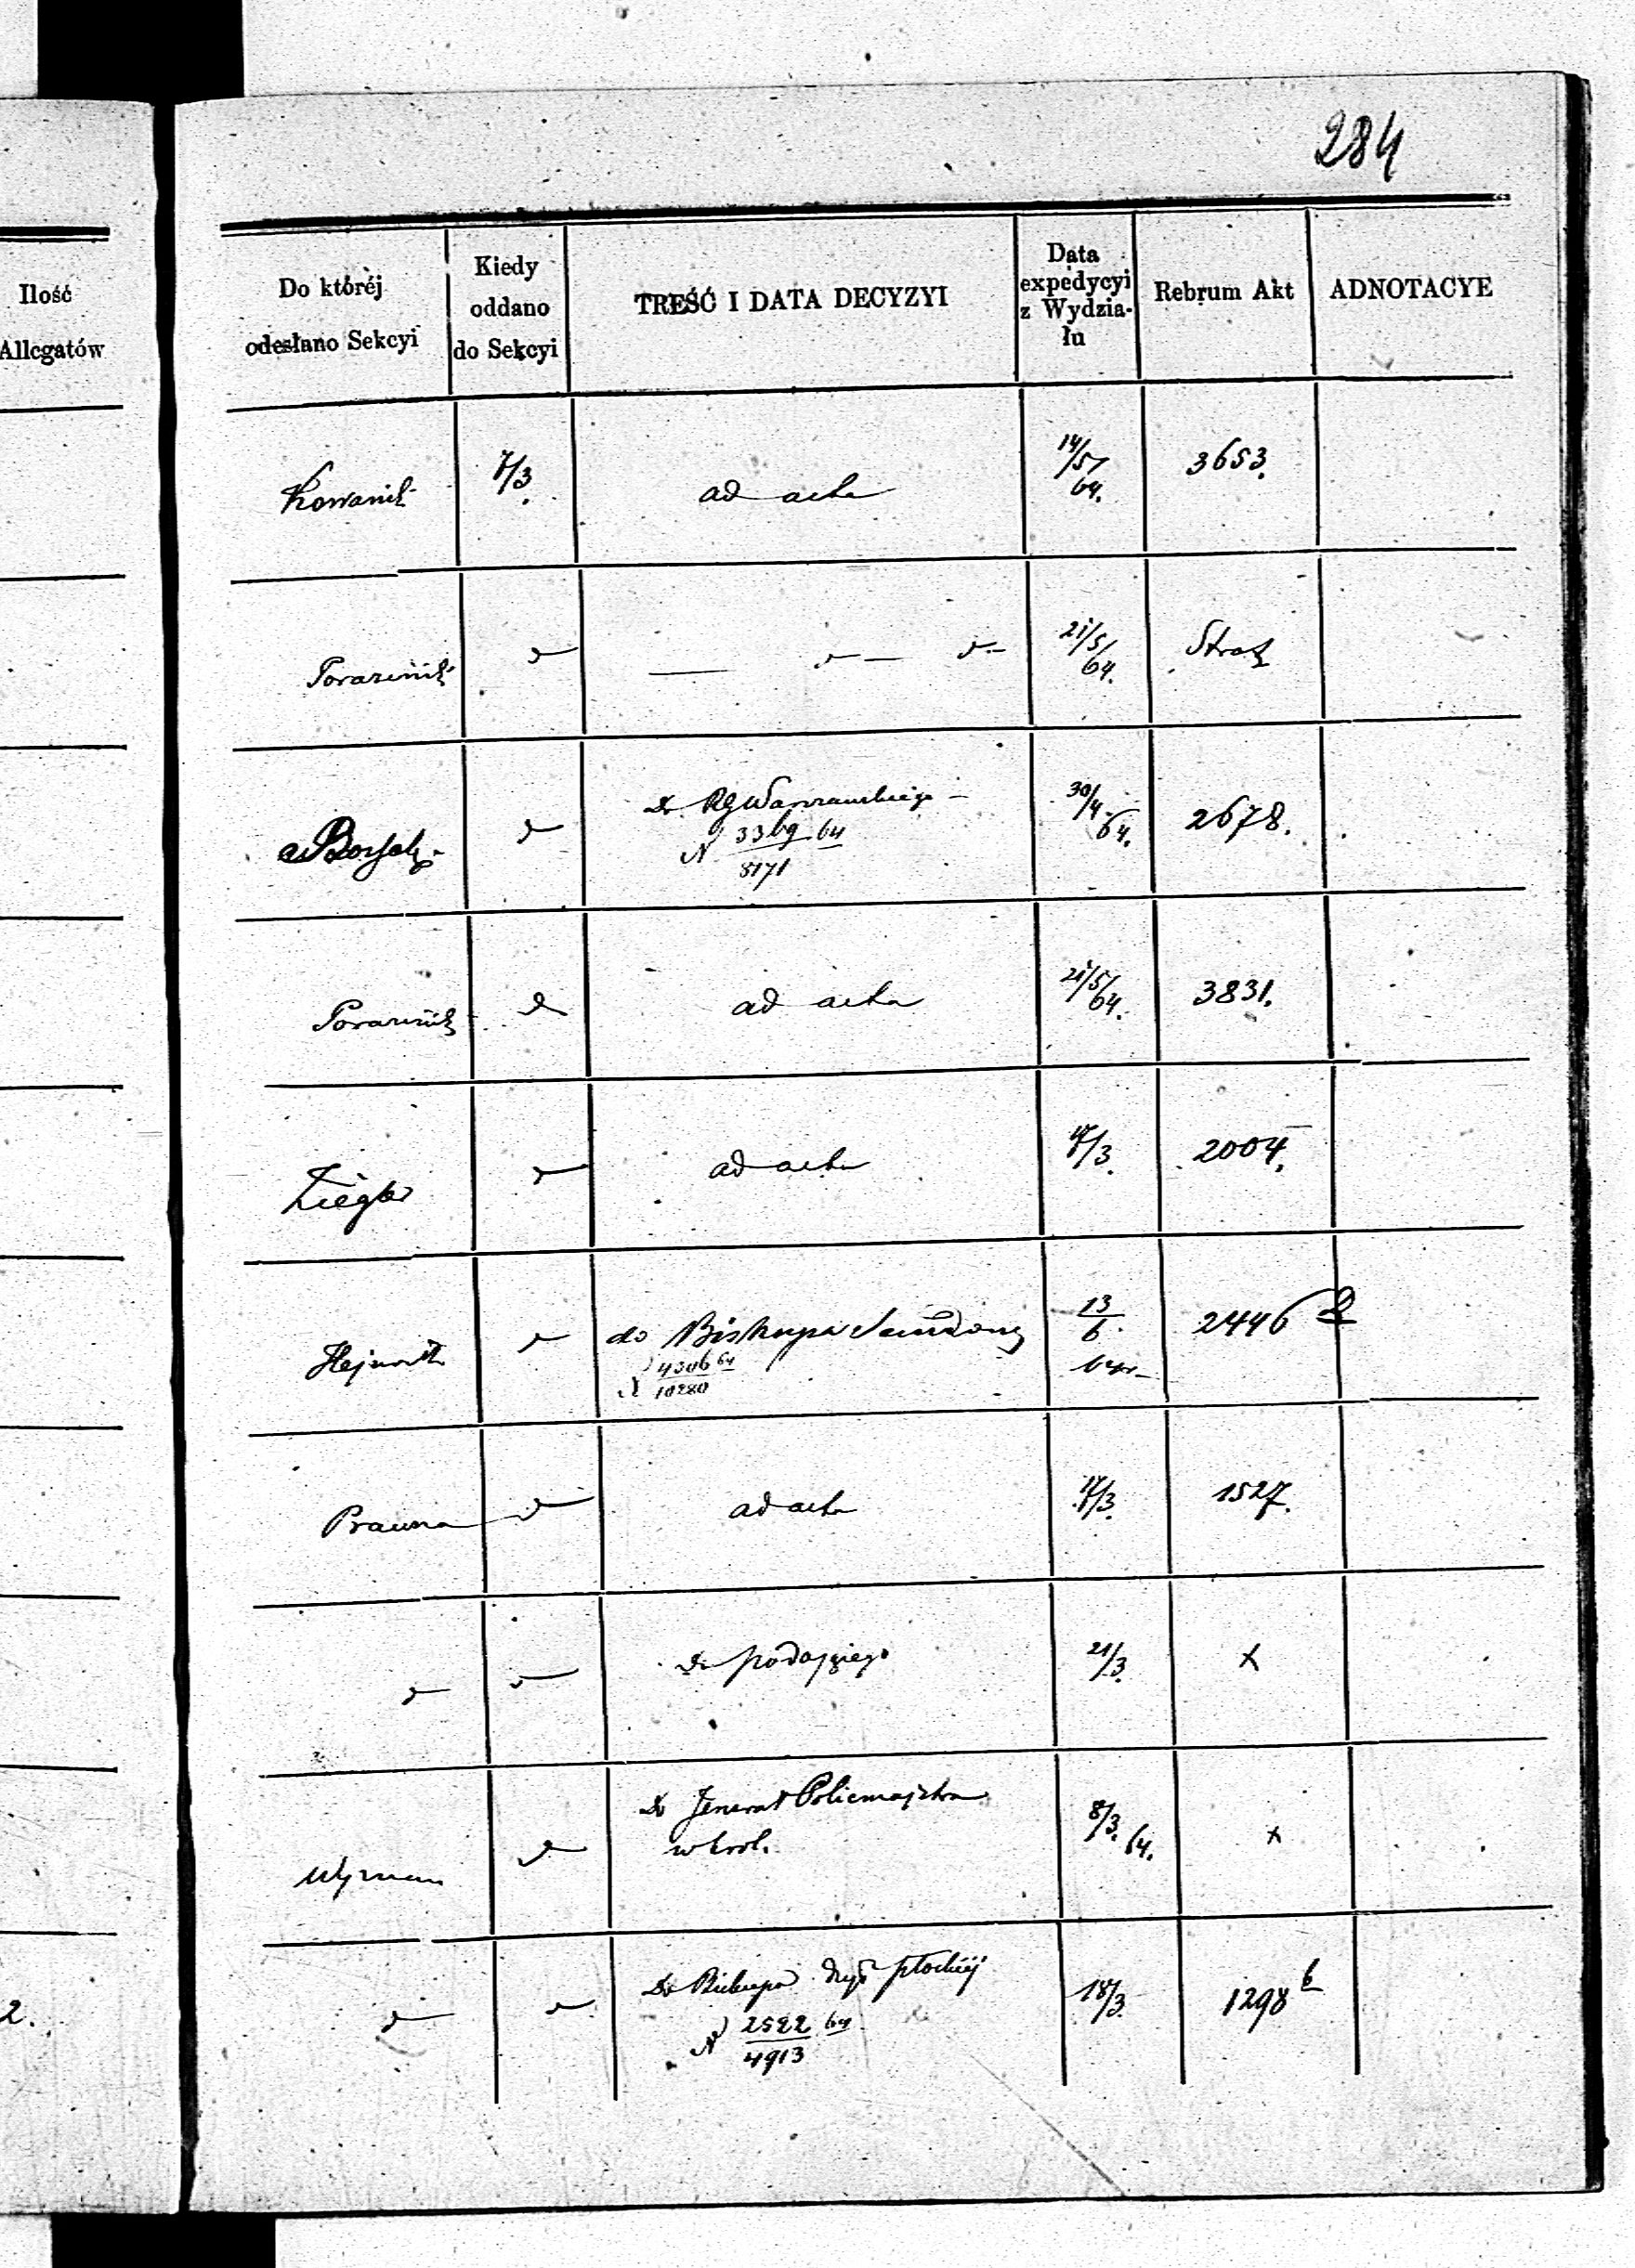 284
Ilość
Allegatów
Do któréj
odesłano Sekcyi
Kiedy
oddano
do Sekcyi
TREŚĆ I DATA DECYZYI
Data
expedycyi
z Wydzia-
łu
Rebrum Akt
ADNOTACYE
7/3.
ad acta
14/5
64.
3653.
21/5
64.
Do RG Warszawskiego
N 3369 64
8171
30/4
64.
2678.
ad acta
21/5
64.
3831.
Ziegler
ad acta
17/3.
2004.
do Biskupa
N 4306 64
10280
13
6.
2446
Prawna
ad acta
17/3.
1527.
Do podającego
21/3.
x
Do Jenerał Policmajstra
w Król.
8/3. 64.
x
2.
Do Biskupa Dyec Płockiéj
N 2522 64
4913
18/3.
1298 b